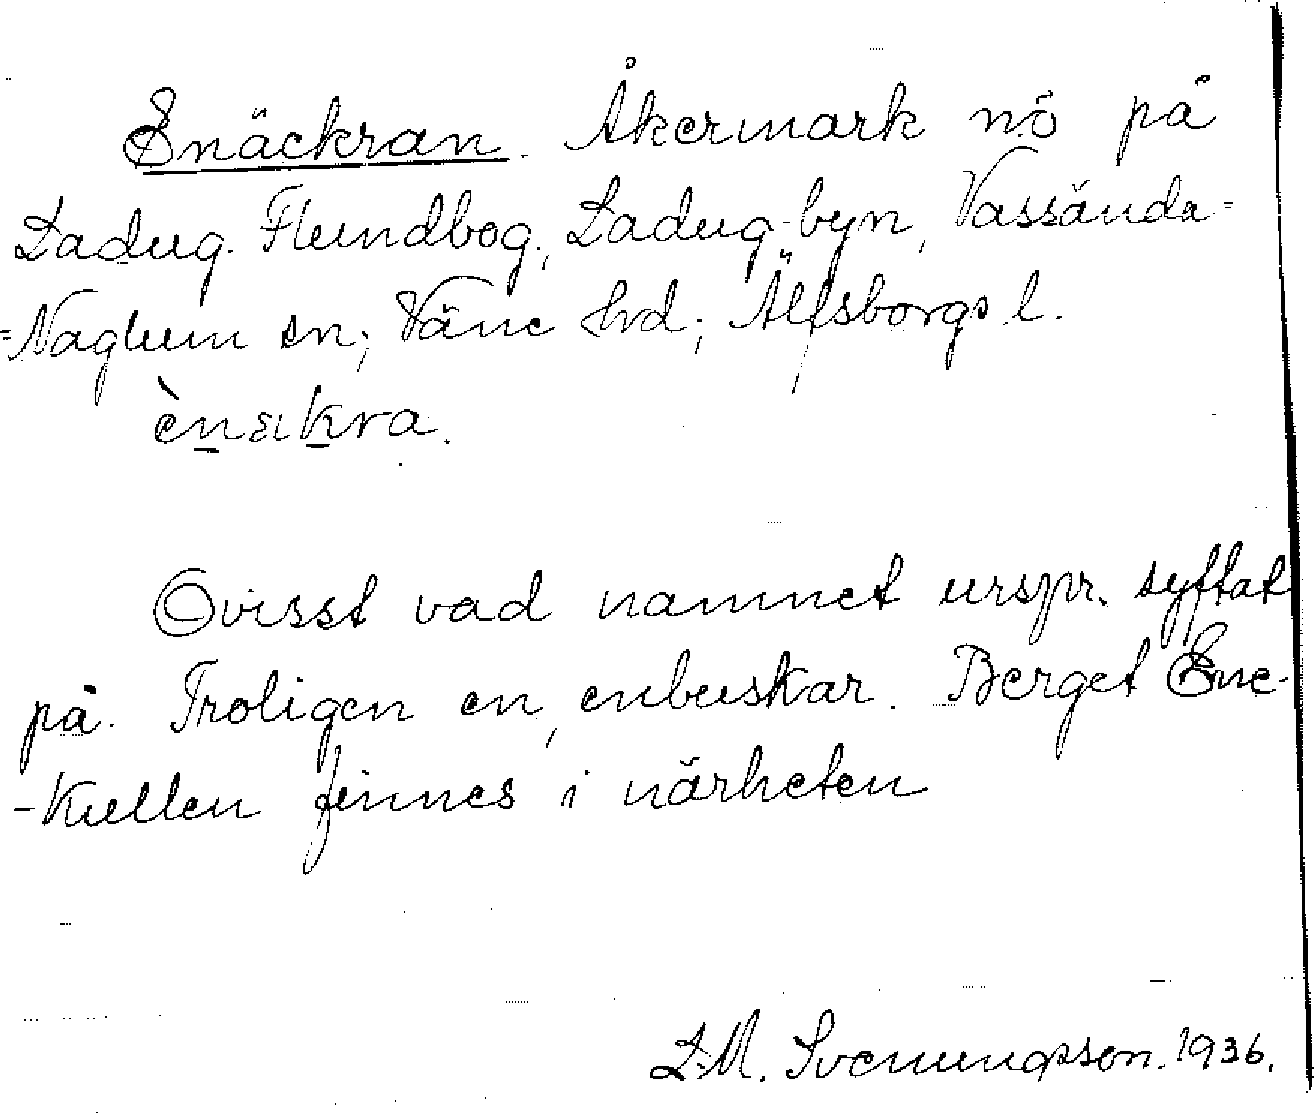 Enäckran. Åkermark nö på
Ladug. Flundbog., Ladug.-byn, Vassända=
=Naglum sn; Väne hd; Älfsborgs l.
Ovisst vad namnet urspr. syftat
på. Troligen en, enbuskar. Berget Ene-
-Kullen finnes i närheten
L.M. Svenungsson. 1936.